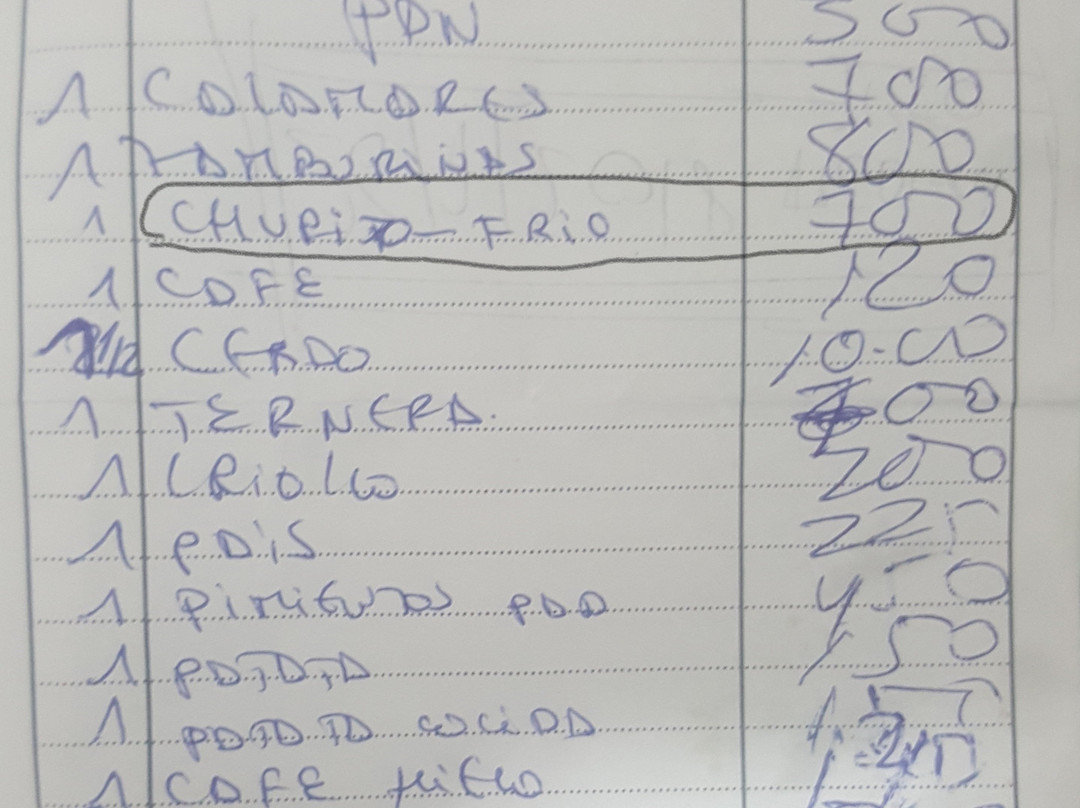 PAN 500
1 CALAMARES 700
1 ZAMBURIÑAS 800
1 CHUPiTO-FRiO 700
1 CAFE 120
1/2 CERDO 10-00
1 TERNERA. 00
1 CRiOLLO 200
1 PAiS 225
1 PiMiENTOS PAD 450
1 PATATA 150
1 PATATA COCiDA
1 CAFE HiELO